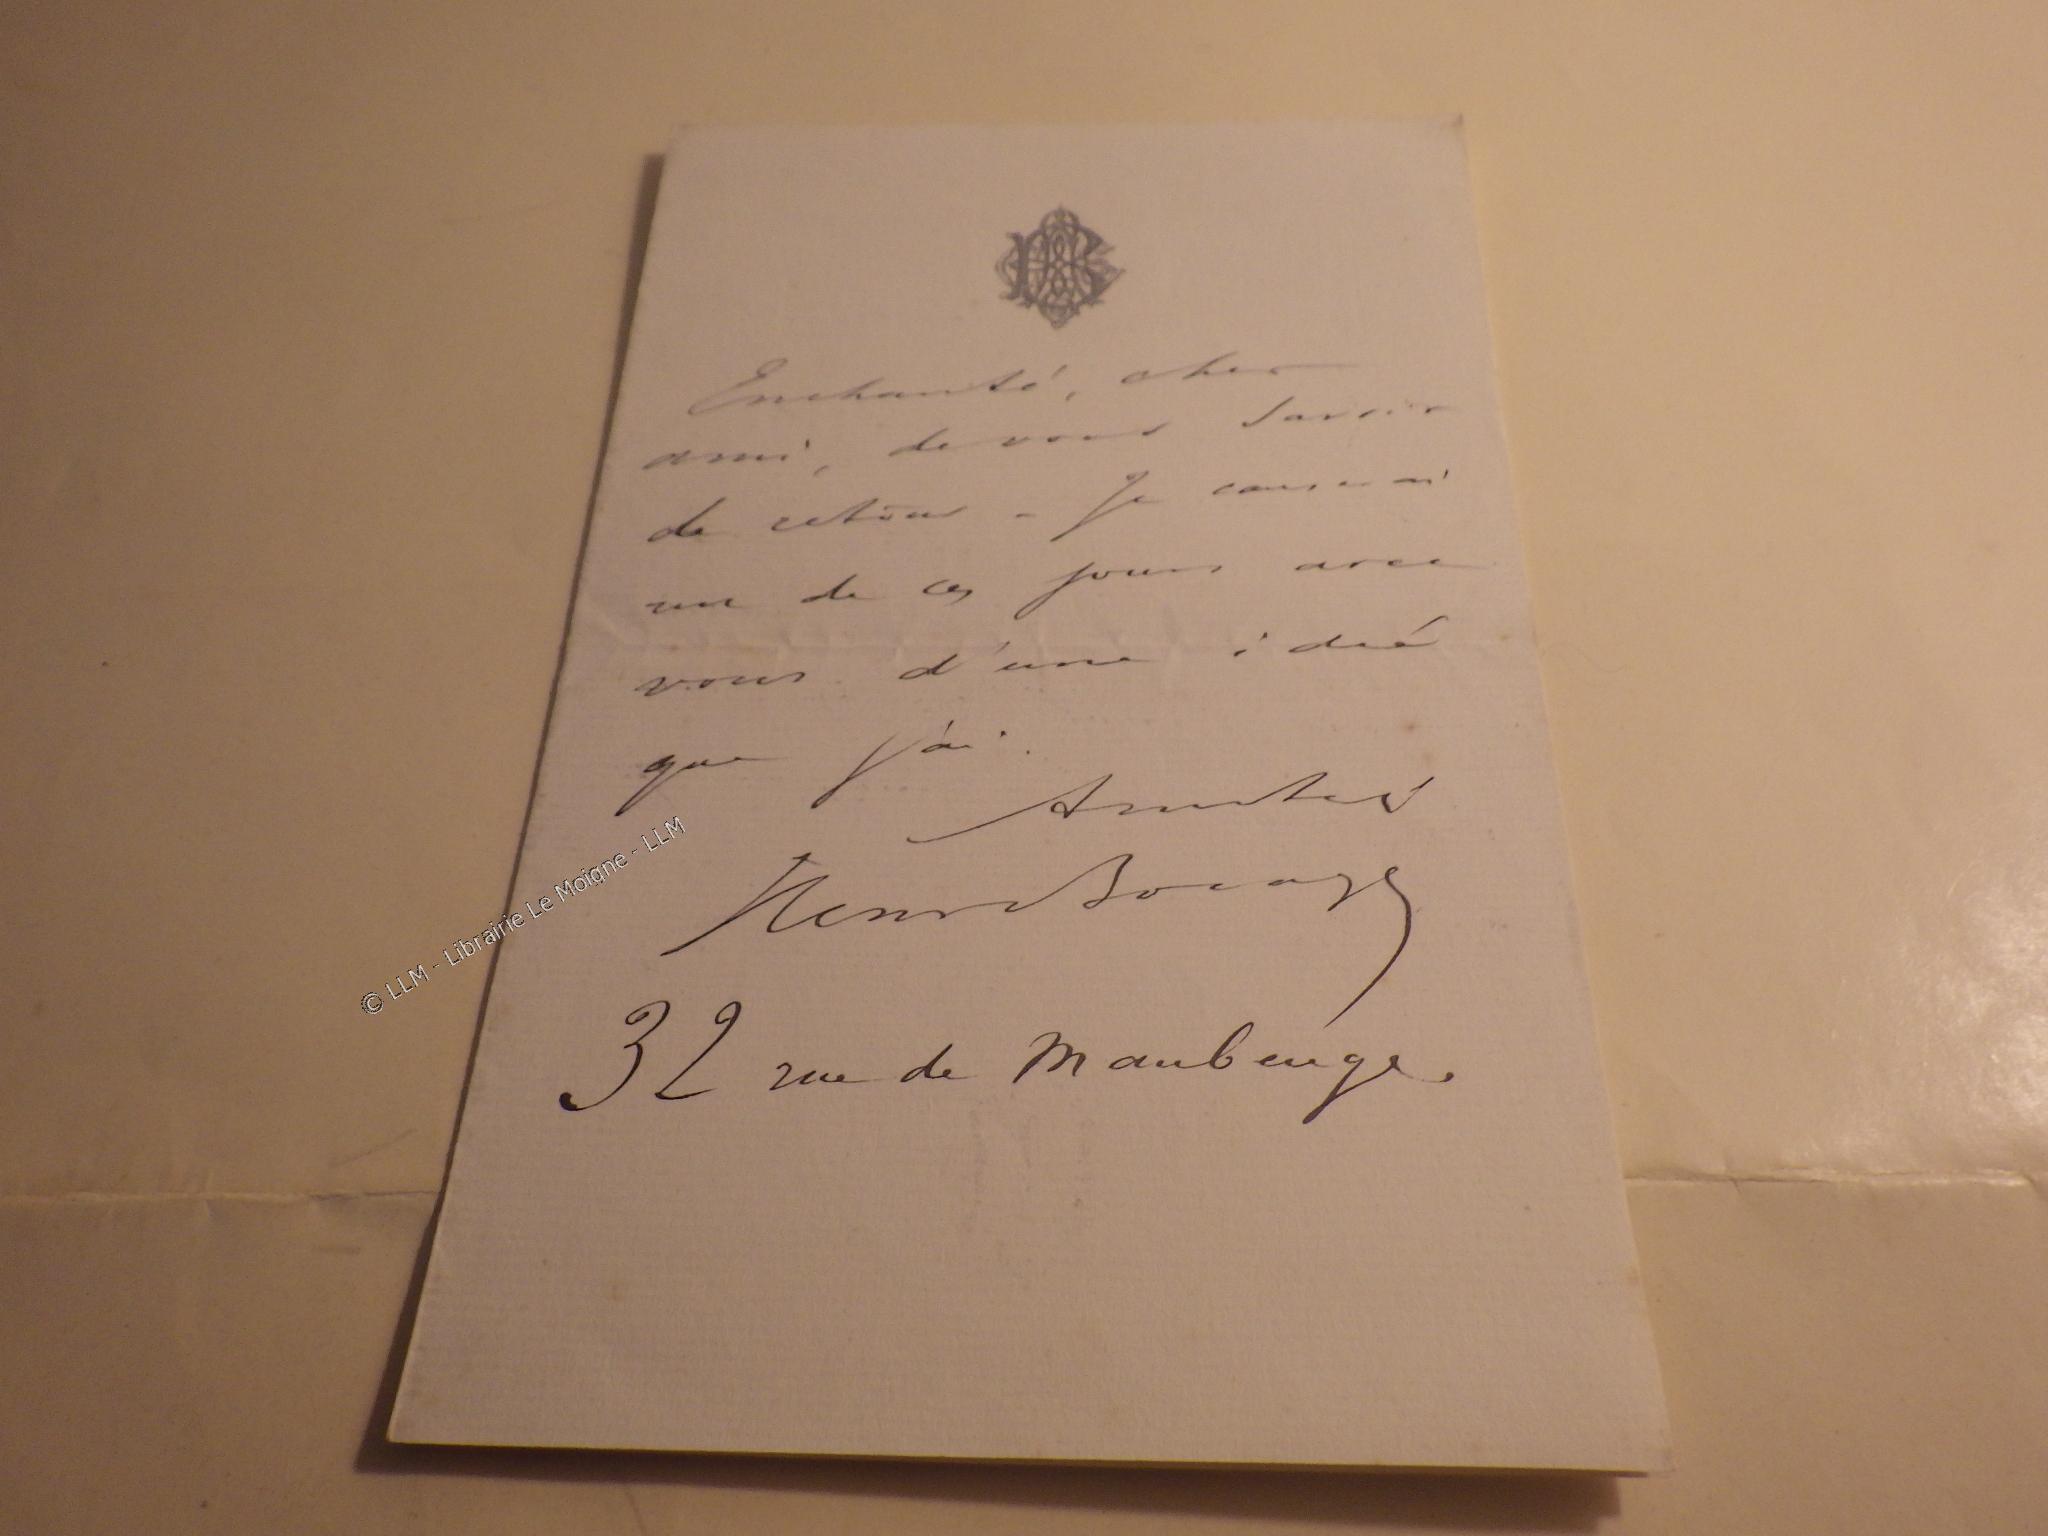 Enchanté, cher
ami, de vous savoir
de retour - Je causerai
un de ces jours avec
vous d'une idée
que j'ai.
Amitiés
Henri Bocage
32 rue de Maubeuge.
© LLM - Librairie Le Moigne - LLM